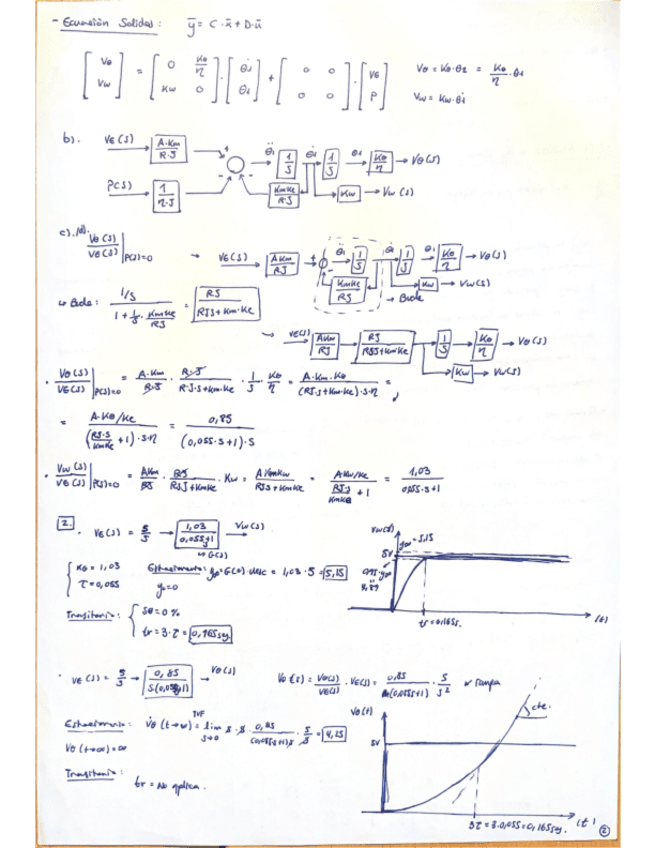 - Ecuación Salidas : ȳ = C · x̄ + D · ū
[Vθ Vw] = [0 Kθ/η ; Kw 0] · [θ̇1 θ1] + [0 0 ; 0 0] · [VE P]
Vθ = Kθ·θ2 = Kθ/η · θ1
Vw = Kw·θ̇1
b).
VE(s) A·Km/R·J + - - θ̈1 1/S θ̇1 1/S θ1 Kθ/η → Vθ(s)
P(s) 1/η·J KmKe/RJ Kw → Vw(s)
c).
Vθ(s)/VE(s) |P(s)=0 → VE(s) AKm/RJ + - θ̈1 1/S θ̇1 1/S θ1 Kθ/η → Vθ(s)
KmKe/RJ Kw → Vw(s)
↳ Bucle : (1/S)/(1 + 1/S · KmKe/RJ) = RJ/(RJS + Km·Ke) → Bucle
→ VE(s) AKm/RJ RJ/(RJS+KmKe) 1/S Kθ/η → Vθ(s)
Kw → Vw(s)
· Vθ(s)/VE(s) |P(s)=0 = A·Km/R·J · R·J/(R·J·S+Km·Ke) · 1/S · Kθ/η = A·Km·Kθ/((RJ·S+KmKe)·S·η) =
= (A·Kθ/Ke)/((RJ·S/KmKe + 1)·S·η) = 0,85/((0,055·S+1)·S)
· Vw(s)/VE(s) |P(s)=0 = AKm/RJ · RJ/(RSJ+KmKe) · Kw = AKmKw/(RJS+KmKe) = (AKw/Ke)/(RJ·S/KmKe + 1) = 1,03/(0,055·S+1)
2.
· VE(s) = 5/S → 1,03/(0,055S+1) Vw(s) →
↳ G(s)
KG = 1,03
τ = 0,055
Estacionario : y∞ = G(0)·Uss = 1,03 · 5 = 5,15
y0 = 0
Transitorio : Sθ = 0 %
tr = 3·τ = 0,165 seg
Vw(t)
y∞ = 5,15
5V
0,95·y∞
4,89
tr = 0,165s.
(t)
· VE(s) = 5/S → 0,85/(S(0,055S+1)) → Vθ(s)
Vθ(s) = Vθ(s)/VE(s) · VE(s) = 0,85/(S(0,055S+1)) · 5/S² rampa
Estacionario : V̇θ (t→∞) = TVF lim S→0 S · S · 0,85/((0,055S+1)S) · 5/S = 4,25
Vθ (t→∞) = ∞
Transitorio :
tr = No aplica.
Vθ(t)
5V
cte.
3τ = 3·0,055 = 0,165 seg.
(t)
2